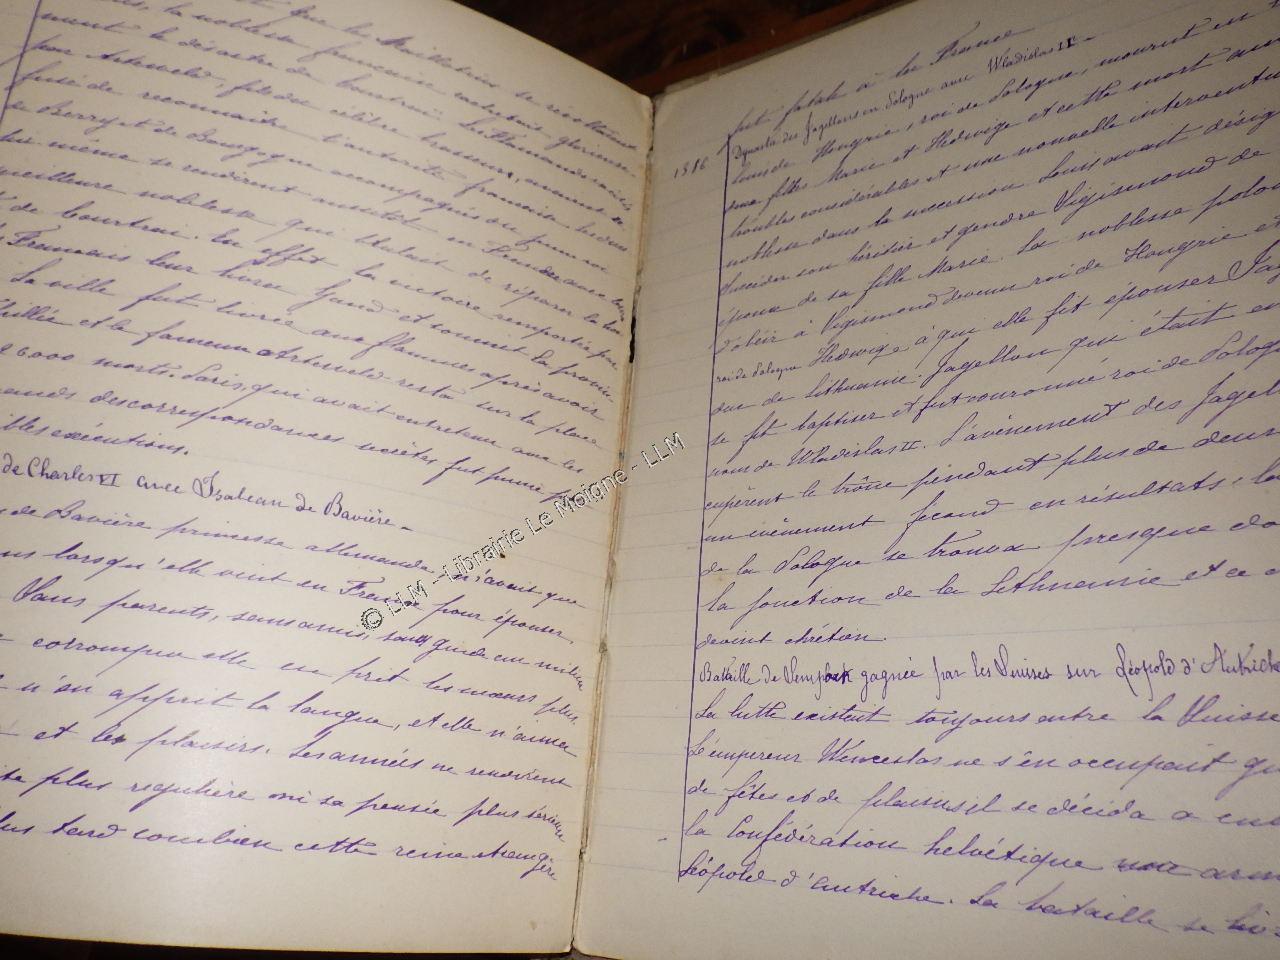 que les Maillotins se révoltaient
la noblesse française
ment le désastre de Courtrai. Les Flamands
par Arteveld, fils du célèbre brasseur, avaient re
fusé de reconnaître l'autorité française. Les ducs
de Berry et de Bourgogne accompagnés du jeune roi
lui même se rendirent aussitôt en Flandre avec
meilleure noblesse qui brûlait de réparer la
de Courtrai. En effet la victoire remportée par
Français leur livra Gand et soumit la provin
La ville fut livrée aux flammes après avoir
pillée et le fameux Arteveld resta sur la place
26000 morts. Paris, qui avait entretenu avec les
des correspondances secrètes fut punie
exécutions.
de Charles VI avec Isabeau de Bavière –
de Bavière princesse allemande n'avait que
lorsqu'elle vint en France pour épouser
Sans parents, sans amis, sans guide au milieu
corrompue elle en prit les mœurs plus
n'en apprit la langue, et elle n'aima
et les plaisirs. Les années ne rendirent
plus régulière ni sa pensée plus sérieuse
plus tard combien cette reine étrangère
fut fatale à la France
Dynastie des Jagellons en Pologne avec Wladislas II –
1386 Louis de Hongrie, roi de Pologne, mourut en
deux filles Marie et Hedwige et cette mort
troubles considérables et une nouvelle intervention
noblesse dans la succession. Louis avait désig
succéder son héritier et gendre Sigismond de
époux de sa fille Marie. La noblesse polo
d'obéir à Sigismond devenu roi de Hongrie et
roi de Pologne Hedwige à qui elle fit épouser Jag
duc de Lithuanie. Jagellon qui était en
se fit baptiser et fut couronné roi de Polog
nom de Wladislas II. L'avènement des Jagell
cupèrent le trône pendant plus de deux
un évènement fécond en résultats, la
de la Pologne se trouva presque do
la jonction de la Lithuanie et ce
devint chrétien.
Bataille de Sempach gagnée par les Suisses sur Léopold d'Autriche
La lutte existait toujours entre la Suisse
L'empereur Wenceslas ne s'en occupait
de fêtes et de plaisirs il se décida a
la Confédération helvétique une arm
Léopold d'Autriche. La bataille se liv
© LLM - Librairie Le Moigne - LLM